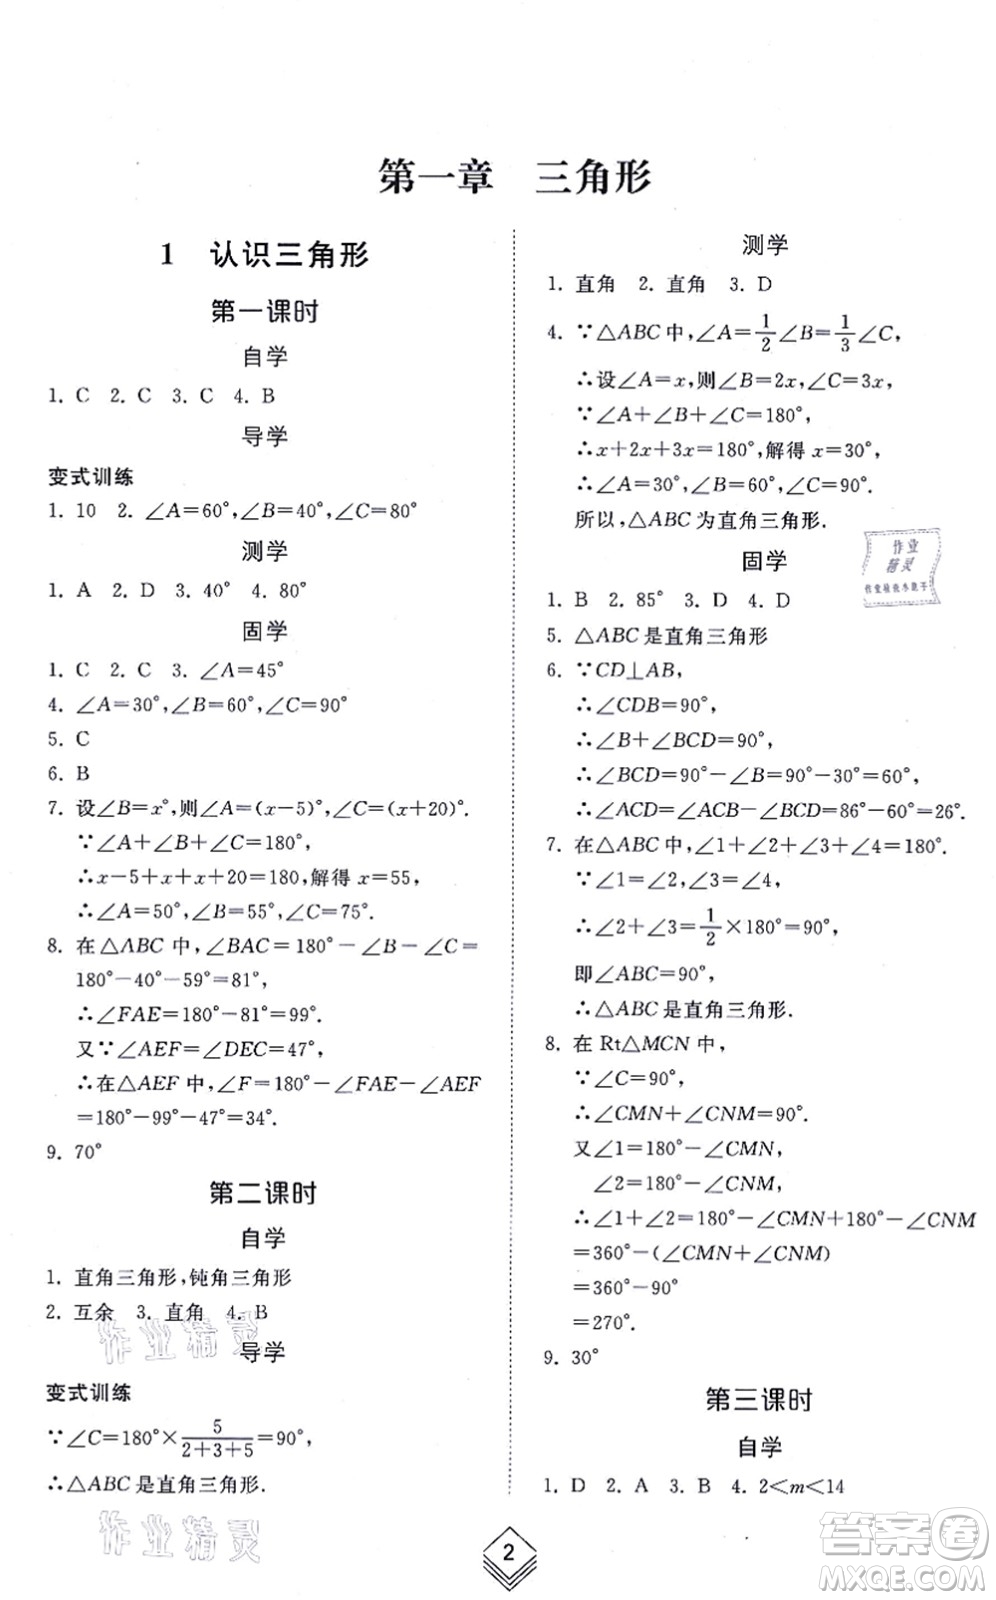 第一章 三角形
1 认识三角形
第一课时
自学
1. C 2. C 3. C 4. B
导学
变式训练
1. 10 2. ∠A=60°,∠B=40°,∠C=80°
测学
1. A 2. D 3. 40° 4. 80°
固学
1. C 2. C 3. ∠A=45°
4. ∠A=30°,∠B=60°,∠C=90°
5. C
6. B
7. 设∠B=x°,则∠A=(x-5)°,∠C=(x+20)°.
∵∠A+∠B+∠C=180°,
∴x-5+x+x+20=180,解得 x=55,
∴∠A=50°,∠B=55°,∠C=75°.
8. 在△ABC 中,∠BAC=180°-∠B-∠C=
180°-40°-59°=81°,
∴∠FAE=180°-81°=99°.
又∵∠AEF=∠DEC=47°,
∴在△AEF 中,∠F=180°-∠FAE-∠AEF
=180°-99°-47°=34°.
9. 70°
第二课时
自学
1. 直角三角形,钝角三角形
2. 互余 3. 直角 4. B
作业精灵
导学
变式训练
∵∠C=180°×5/(2+3+5)=90°,
∴△ABC 是直角三角形.
作业精灵
测学
1. 直角 2. 直角 3. D
4. ∵△ABC 中,∠A=1/2∠B=1/3∠C,
∴设∠A=x,则∠B=2x,∠C=3x,
∵∠A+∠B+∠C=180°,
∴x+2x+3x=180°,解得 x=30°,
∴∠A=30°,∠B=60°,∠C=90°.
所以,△ABC 为直角三角形.
作业
精灵
固学
1. B 2. 85° 3. D 4. D
5. △ABC 是直角三角形
6. ∵CD⊥AB,
∴∠CDB=90°,
∴∠B+∠BCD=90°,
∴∠BCD=90°-∠B=90°-30°=60°,
∴∠ACD=∠ACB-∠BCD=86°-60°=26°.
7. 在△ABC 中,∠1+∠2+∠3+∠4=180°.
∵∠1=∠2,∠3=∠4,
∴∠2+∠3=1/2×180°=90°,
即∠ABC=90°,
∴△ABC 是直角三角形.
8. 在 Rt△MCN 中,
∵∠C=90°,
∴∠CMN+∠CNM=90°.
又∠1=180°-∠CMN,
∠2=180°-∠CNM,
∴∠1+∠2=180°-∠CMN+180°-∠CNM
=360°-(∠CMN+∠CNM)
=360°-90°
=270°.
9. 30°
第三课时
自学
1. D 2. A 3. B 4. 2<m<14
2
答案圈
MXQE.COM